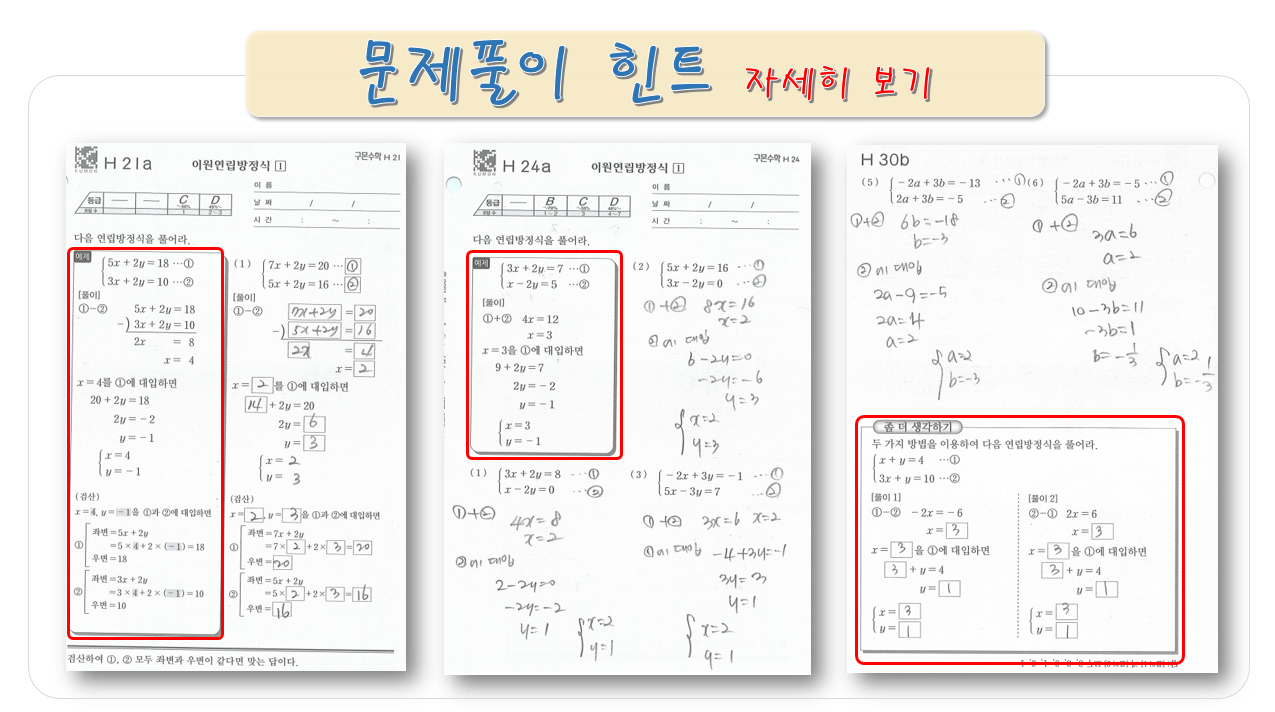 문제풀이 힌트 자세히 보기
KUMON
H 21a
이원연립방정식 1
구몬수학 H 21
등급 — — C D
~50% 49%~
1 2~3
이 름
날 짜 / /
시 간 : ~ :
다음 연립방정식을 풀어라.
예제
5x+2y=18 …①
3x+2y=10 …②
[풀이]
①-② 5x+2y=18
-) 3x+2y=10
2x = 8
x= 4
x=4를 ①에 대입하면
20+2y=18
2y=-2
y=-1
x=4
y=-1
(검산)
x=4, y=-1을 ①과 ②에 대입하면
① 좌변=5x+2y
=5×4+2×(-1)=18
우변=18
② 좌변=3x+2y
=3×4+2×(-1)=10
우변=10
(1) 7x+2y=20 … ①
5x+2y=16 … ②
[풀이]
①-② 7x+2y = 20
-) 5x+2y = 16
2x = 4
x= 2
x= 2 를 ①에 대입하면
14 +2y=20
2y= 6
y= 3
x= 2
y= 3
(검산)
x= 2 , y= 3 을 ①과 ②에 대입하면
① 좌변=7x+2y
=7× 2 +2× 3 = 20
우변= 20
② 좌변=5x+2y
=5× 2 +2× 3 = 16
우변= 16
검산하여 ①, ② 모두 좌변과 우변이 같다면 맞는 답이다.
KUMON
H 24a
이원연립방정식 1
구몬수학 H 24
등급 — B C D
1~2 3 4~7
이 름
날 짜 / /
시 간 : ~ :
다음 연립방정식을 풀어라.
예제
3x+2y=7 …①
x-2y=5 …②
[풀이]
①+② 4x=12
x=3
x=3을 ①에 대입하면
9+2y=7
2y=-2
y=-1
x=3
y=-1
(2) 5x+2y=16 …①
3x-2y=0 …②
①+② 8x=16
x=2
②에 대입
6-2y=0
-2y=-6
y=3
x=2
y=3
(1) 3x+2y=8 …①
x-2y=0 …②
①+② 4x=8
x=2
②에 대입
2-2y=0
-2y=-2
y=1
x=2
y=1
(3) -2x+3y=-1 …①
5x-3y=7 …②
①+② 3x=6 x=2
①에 대입 -4+3y=-1
3y=3
y=1
x=2
y=1
H 30b
(5) -2a+3b=-13 …①
2a+3b=-5 …②
①+② 6b=-18
b=-3
②에 대입
2a-9=-5
2a=4
a=2
a=2
b=-3
(6) -2a+3b=-5 …①
5a-3b=11 …②
①+② 3a=6
a=2
②에 대입
10-3b=11
-3b=1
b=-1/3
a=2
b=-1/3
좀 더 생각하기
두 가지 방법을 이용하여 다음 연립방정식을 풀어라.
x+y=4 …①
3x+y=10 …②
[풀이 1]
①-② -2x=-6
x= 3
x= 3 을 ①에 대입하면
3 +y=4
y= 1
x= 3
y= 1
[풀이 2]
②-① 2x=6
x= 3
x= 3 을 ①에 대입하면
3 +y=4
y= 1
x= 3
y= 1